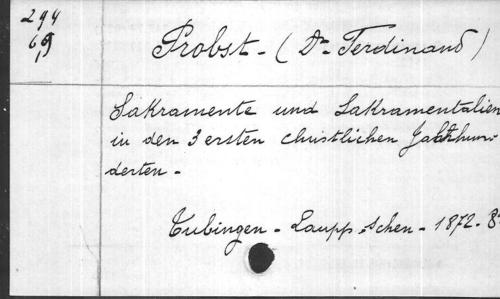 294
6,9
Probst - (Dr Ferdinand)
Sakramente und Sakramentalien
in den 3 ersten christlichen Jahrhun-
derten -
Tubingen - Laupp.schen - 1872 - 8º